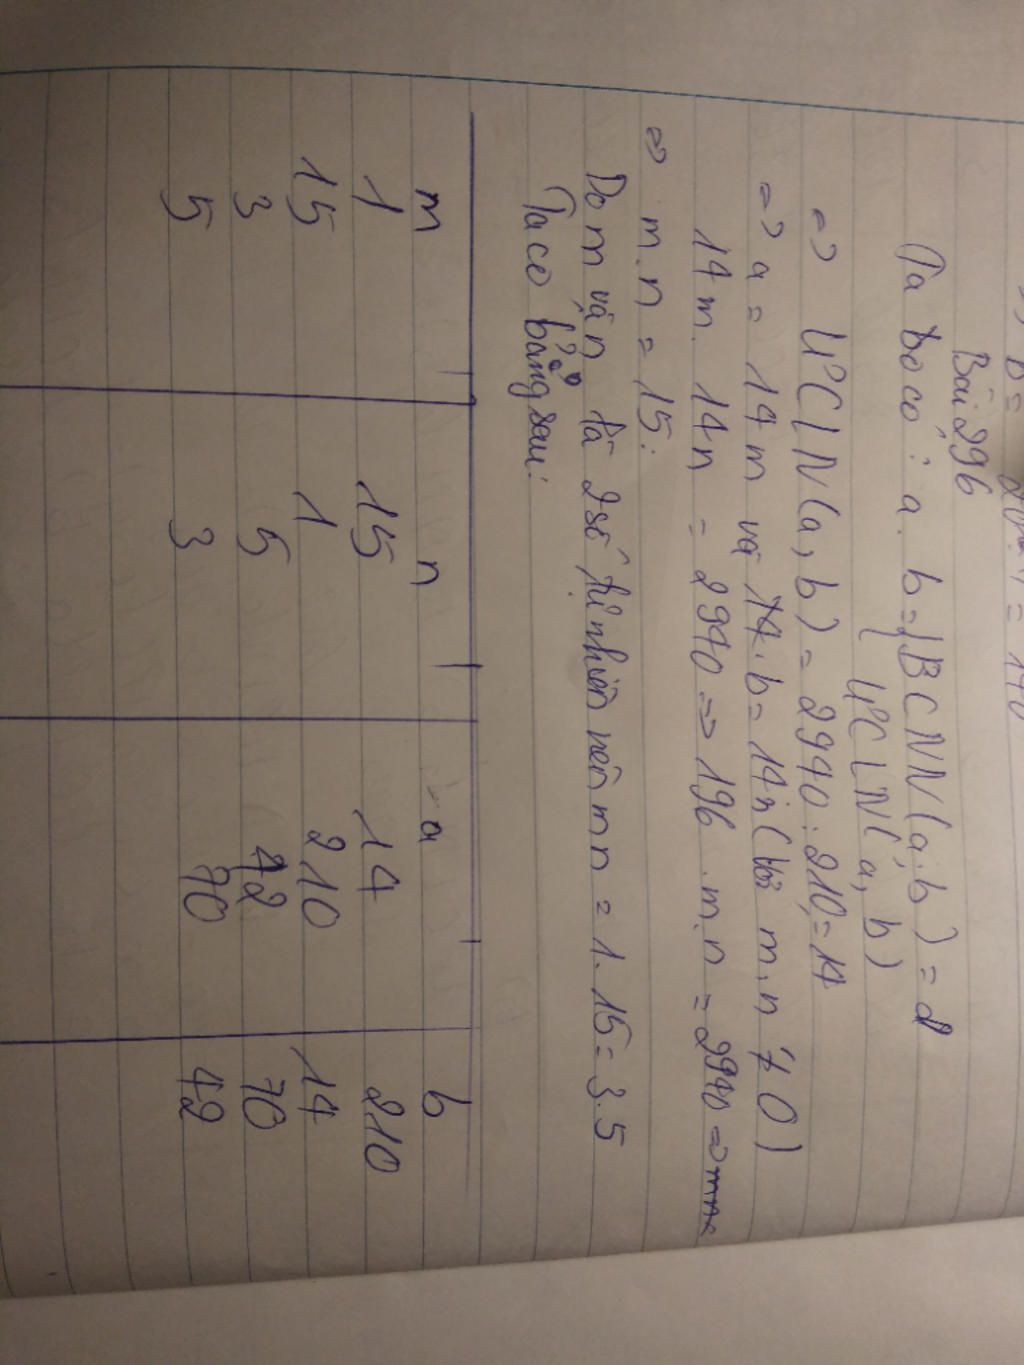 Bài 296
Ta có : a. b = BCNN(a,b) = d
ƯCLN(a, b)
=> ƯCLN(a, b) = 2940 : 210 = 14
=> a = 14m và b = 14n (với m, n ≠ 0)
14m. 14n = 2940 => 196 . m.n = 2940 =>
=> m.n = 15.
Do m và n là 2 số tự nhiên nên m n = 1. 15 = 3.5
Ta có bảng sau:
m n a b
1 15 14 210
15 1 210 14
3 5 42 70
5 3 70 42